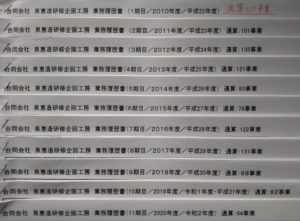 合同会社 泉惠造研修企画工房 業務履歴書(1期目/2010年度/平成22年度) 通算:67事業
合同会社 泉惠造研修企画工房 業務履歴書(2期目/2011年度/平成23年度) 通算:101事業
合同会社 泉惠造研修企画工房 業務履歴書(3期目/2012年度/平成24年度) 通算:135事業
合同会社 泉惠造研修企画工房 業務履歴書(4期目/2013年度/平成25年度) 通算:121事業
合同会社 泉惠造研修企画工房 業務履歴書(5期目/2014年度/平成26年度) 通算:93事業
合同会社 泉惠造研修企画工房 業務履歴書(6期目/2015年度/平成27年度) 通算:78事業
合同会社 泉惠造研修企画工房 業務履歴書(7期目/2016年度/平成28年度) 通算:122事業
合同会社 泉惠造研修企画工房 業務履歴書(8期目/2017年度/平成29年度) 通算:131事業
合同会社 泉惠造研修企画工房 業務履歴書(9期目/2018年度/平成30年度) 通算:88事業
合同会社 泉惠造研修企画工房 業務履歴書(10期目/2019年度/令和1年度・平成31年度) 通算:82事業
合同会社 泉惠造研修企画工房 業務履歴書(11期目/2020年度/令和2年度) 通算:64事業